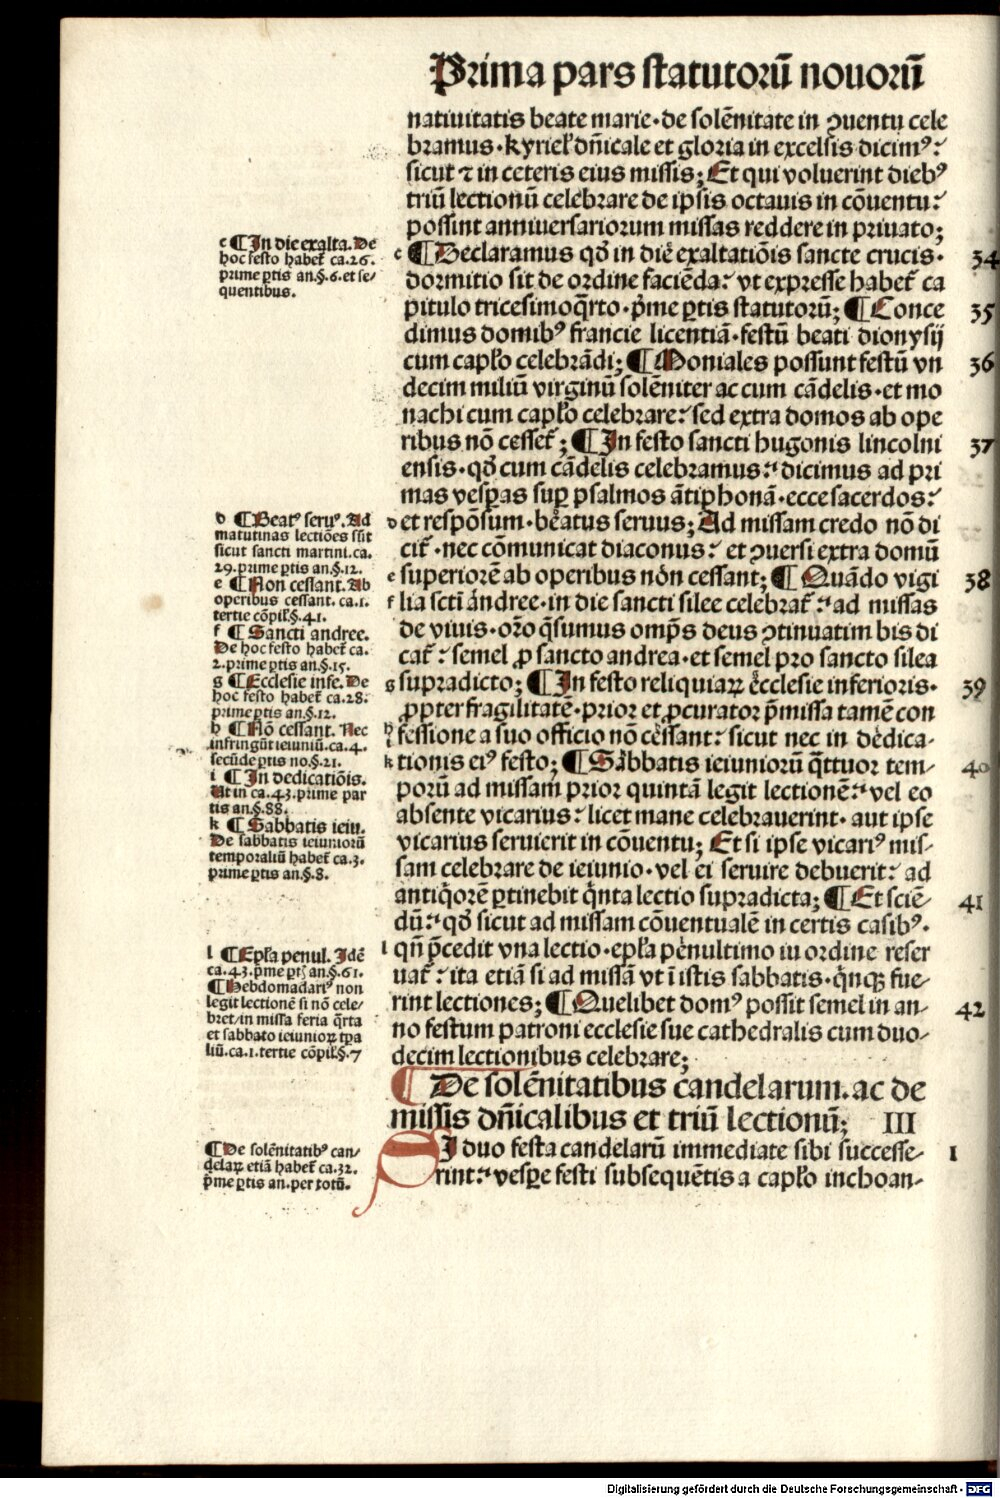 Prima pars statutorū nouorū
natiuitatis beate marie·de solēnitate in ꝯuentu cele
bramus·kyriel' dn̄icale et gloria in excelsis dicimꝰ:
sicut ⁊ in ceteris eius missis; Et qui voluerint diebꝰ
triū lectionū celebrare de ipsis octauis in cōuentu:
possint anniuersariorum missas reddere in priuato;
c ¶ Declaramus qđ in die exaltatiōis sancte crucis· 34
dormitio sit de ordine faciēda: vt expresse habet̄ ca
pitulo tricesimoq̄rto·p̄me ꝑtis statutorū; ¶ Conce 35
dimus domibꝰ francie licentiā·festū beati dionysij
cum capl'o celebrādi; ¶ Moniales possunt festū vn 36
decim miliū virginū solēniter ac cum cādelis·et mo
nachi cum capl'o celebrare: sed extra domos ab ope
ribus nō cesset̄; ¶ In festo sancti hugonis lincolni 37
ensis·qđ cum cādelis celebramus: dicimus ad pri
mas vesꝑas suꝑ psalmos ātiphonā·ecce sacerdos:
d et respōsum·beatus seruus; Ad missam credo nō di
cit̄·nec cōmunicat diaconus: et ꝯuersi extra domū
e superiorē ab operibus nōn cessant; ¶ Quādo vigi 38
f lia scti āndree·in die sancti silee celebrat̄: ad missas
de viuis·or̄o q̄sumus omp̄s deus ꝯtinuatim bis di
cat̄: semel ꝓ sancto andrea·et semel pro sancto silea
g supradicto; ¶ In festo reliquiaꝝ ecclesie inferioris· 39
ꝓpter fragilitatē·prior et ꝓcurator p̄missa tamē con
h i fessione a suo officio nō cessant: sicut nec in dedica-
k tionis eiꝰ festo; ¶ Sabbatis ieiuniorū q̄ttuor tem- 40
porū ad missam prior quintā legit lectionē: vel eo
absente vicarius: licet mane celebrauerint·aut ipse
vicarius seruierit in cōuentu; Et si ipse vicariꝰ mis-
sam celebrare de ieiunio·vel ei seruire debuerit: ad
antiq̄orē ꝑtinebit q̄nta lectio supradicta; ¶ Et sciē- 41
dū: qđ sicut ad missam cōuentualē in certis casibꝰ·
l qn̄ p̄cedit vna lectio·epl'a penultimo in ordine reser
uat̄: ita etiā si ad missā vt ī istis sabbatis·q̄nqꝫ fue-
rint lectiones; ¶ Quelibet domꝰ possit semel in an- 42
no festum patroni ecclesie sue cathedralis cum duo-
decim lectionibus celebrare;
¶ De solēnitatibus candelarum. ac de
missis dn̄icalibus et triū lectionū; III
SI duo festa candelarū immediate sibi successe- 1
rint: vesꝑe festi subsequētis a capl'o inchoan-
c ¶ In die exalta. De
hoc festo habet̄ ca.26.
prime ꝑtis an.§.6.et se-
quentibus.
d ¶ Beatꝰ seruꝰ. Ad
matutinas lectiōes sūt
sicut sancti martini.ca.
29.prime ꝑtis an.§.12.
e ¶ Non cessant. Ab
operibus cessant. ca.1.
tertie cōpil'.§.41.
f ¶ Sancti andree.
De hoc festo habet̄ ca.
2.prime ꝑtis an.§.15.
g ¶ Ecclesie infe. De
hoc festo habet̄ ca.28.
prime ꝑtis an.§.12.
h ¶ Nō cessant. Nec
infringūt ieiuniū.ca.4.
secūde ꝑtis no.§.21.
i ¶ In dedicatiōis.
Ut in ca.43.prime par
tis an.§.88.
k ¶ Sabbatis ieiu.
De sabbatis ieiuniorū
temporaliū habet̄ ca.3.
prime ꝑtis an.§.8.
l ¶ Epl'a penul. Idē
ca.43.p̄me ꝑtꝭ an.§.61.
¶ Hebdomadariꝰ non
legit lectionē si nō cele-
bret in missa feria q̄rta
et sabbato ieiunioꝝ tp̄a
liū.ca.1.tertie cōpil'.§.7
¶ De solēnitatibꝰ can-
delaꝝ etiā habet̄ ca.32.
p̄me ꝑtis an.per totū.
Digitalisierung gefördert durch die Deutsche Forschungsgemeinschaft - DFG